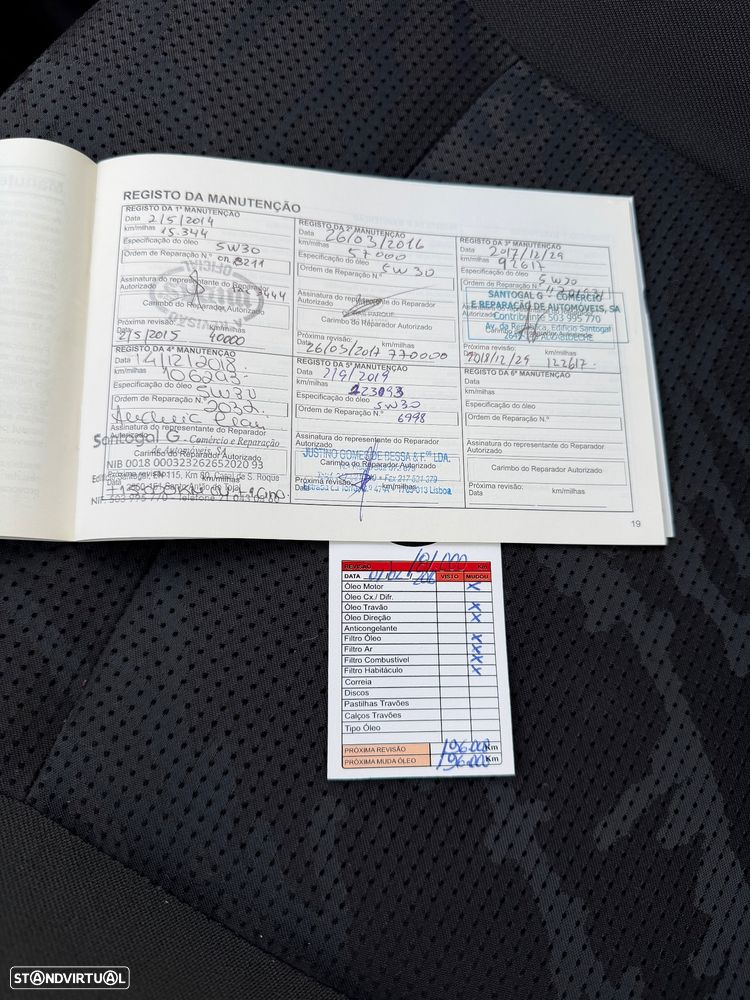 REGISTO DA MANUTENÇÃO
REGISTO DA 1ª MANUTENÇÃO
Data 2/5/2014
km/milhas 15.344
Especificação do óleo 5W30
Ordem de Reparação N.º
Assinatura do representante do Reparador
Autorizado
Carimbo do Reparador Autorizado
Próxima revisão:
Data 2/5/2015 km/milhas 40000
REGISTO DA 2ª MANUTENÇÃO
Data 26/03/2016
km/milhas 57000
Especificação do óleo 5W30
Ordem de Reparação N.º
Assinatura do representante do Reparador
Autorizado
Carimbo do Reparador Autorizado
Próxima revisão:
Data 26/03/2017 km/milhas
REGISTO DA 3ª MANUTENÇÃO
Data 2017/12/29
km/milhas 92617
Especificação do óleo 5W30
Ordem de Reparação N.º
SANTOGAL G - COMÉRCIO
E REPARAÇÃO DE AUTOMÓVEIS, SA
Contribuinte 503 995 770
Av. da República, Edifício Santogal
Próxima revisão:
Data 2018/12/29 km/milhas 122617
REGISTO DA 4ª MANUTENÇÃO
Data 14/12/2018
km/milhas 106293
Especificação do óleo 5W30
Ordem de Reparação N.º
Assinatura do representante do Reparador
Autorizado
Santogal G - Comércio e Reparação
de Automóveis, SA
Carimbo do Reparador Autorizado
NIB 0018 000323262652020 93
Próxima revisão
REGISTO DA 5ª MANUTENÇÃO
Data 2/9/2019
km/milhas 123093
Especificação do óleo 5W30
Ordem de Reparação N.º 6998
Assinatura do representante do Reparador
Autorizado
JUSTINO GOMES DE BESSA & F.ºˢ LDA.
Carimbo do Reparador Autorizado
Próxima revisão:
Lisboa
REGISTO DA 6ª MANUTENÇÃO
Data
km/milhas
Especificação do óleo
Ordem de Reparação N.º
Assinatura do representante do Reparador
Autorizado
Carimbo do Reparador Autorizado
Próxima revisão:
Data km/milhas
19
REVISÃO 181.000 KM
DATA VISTO MUDOU
Óleo Motor X
Óleo Cx / Difr.
Óleo Travão X
Óleo Direção X
Anticongelante
Filtro Óleo X
Filtro Ar X
Filtro Combustível X
Filtro Habitáculo X
Correia
Discos
Pastilhas Travões
Calços Travões
Tipo Óleo
PRÓXIMA REVISÃO 196.000 Km
PRÓXIMA MUDA ÓLEO 196.000 Km
STANDVIRTUAL